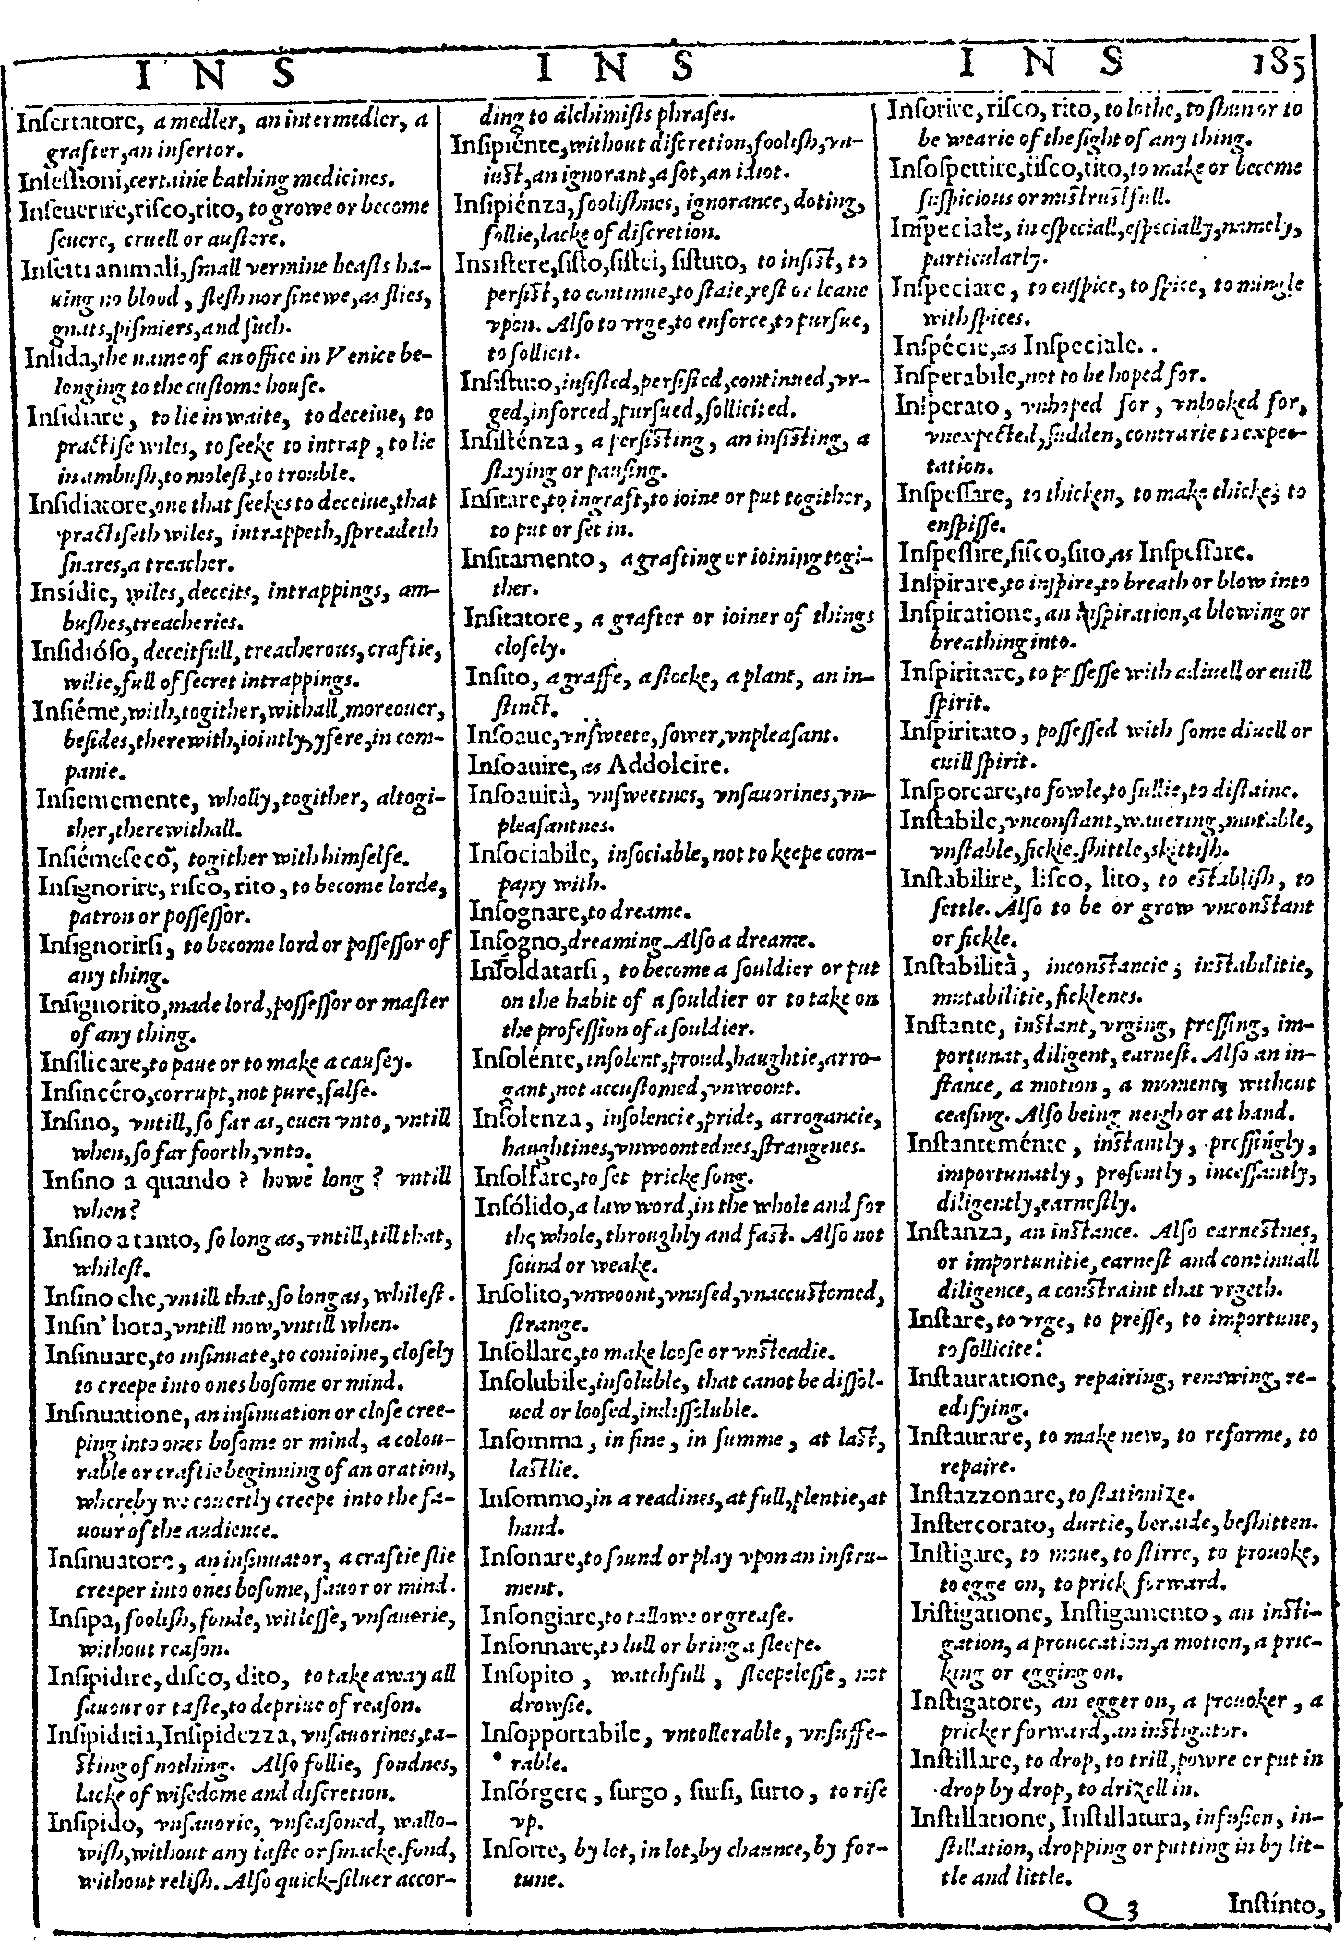 INS INS INS 185
Insertatore, a medler, an intermedler, a
grafter, an insertor.
Insessioni, certaine bathing medicines.
Inseuerire, risco, rito, to growe or become
seuere, cruell or austere.
Insetti animali, small vermine beasts ha-
uing no bloud, flesh nor sinewe, as flies,
gnats, pismiers, and such.
Insida, the name of an office in Venice be-
longing to the custome house.
Insidiare, to lie in waite, to deceiue, to
practise wiles, to seeke to intrap, to lie
in ambush, to molest, to trouble.
Insidiatore, one that seekes to deceiue, that
practiseth wiles, intrappeth, spreadeth
snares, a treacher.
Insidie, wiles, deceits, intrappings, am-
bushes, treacheries.
Insidióso, deceitfull, treacherous, craftie,
wilie, full of secret intrappings.
Insiéme, with, togither, withall, moreouer,
besides, therewith, iointly, yfere, in com-
panie.
Insiememente, wholly, togither, altogi-
ther, therewithall.
Insiémeseco, togither with himselfe.
Insignorire, risco, rito, to become lorde,
patron or possessor.
Insignorirsi, to become lord or possessor of
any thing.
Insignorito, made lord, possessor or master
of any thing.
Insilicare, to paue or to make a causey.
Insincéro, corrupt, not pure, false.
Insino, vntill, so far as, euen vnto, vntill
when, so far foorth, vnto.
Insino a quando? howe long? vntill
when?
Insino a tanto, so long as, vntill, till that,
whilest.
Insino che, vntill that, so long as, whilest.
Insin' hora, vntill now, vntill when.
Insinuare, to insinuate, to conioine, closely
to creepe into ones bosome or mind.
Insinuatione, an insinuation or close cree-
ping into ones bosome or mind, a colou-
rable or craftie beginning of an oration,
whereby we couertly creepe into the fa-
uour of the audience.
Insinuatore, an insinuator, a craftie slie
creeper into ones bosome, fauor or mind.
Insipa, foolish, fonde, witlesse, vnsauerie,
without reason.
Insipidire, disco, dito, to take away all
sauour or taste, to depriue of reason.
Insipidità, Insipidezza, vnsauorines, ta-
sting of nothing. Also follie, fondnes,
lacke of wisedome and discretion.
Insipido, vnsauorie, vnseasoned, wallo-
wish, without any taste or smacke, fond,
without relish. Also quick-siluer accor-
ding to alchimists phrases.
Insipiénte, without discretion, foolish, vn-
iust, an ignorant, a sot, an idiot.
Insipiénza, foolishnes, ignorance, doting,
follie, lacke of discretion.
Insistere, sisto, sistei, sistuto, to insist, to
persist, to continue, to staie, rest or leane
vpon. Also to vrge, to enforce, to pursue,
to sollicit.
Insistuto, insisted, persisted, continued, vr-
ged, inforced, pursued, sollicited.
Insisténza, a persisting, an insisting, a
staying or pausing.
Insitare, to ingraft, to ioine or put togither,
to put or set in.
Insitamento, a grafting or ioining togi-
ther.
Insitatore, a grafter or ioiner of things
closely.
Insito, a graffe, a stocke, a plant, an in-
stinct.
Insoaue, vnsweete, sower, vnpleasant.
Insoauire, as Addolcire.
Insoauità, vnsweetnes, vnsauorines, vn-
pleasantnes.
Insociabile, insociable, not to keepe com-
pany with.
Insognare, to dreame.
Insogno, dreaming. Also a dreame.
Insoldatarsi, to become a souldier or put
on the habit of a souldier or to take on
the profession of a souldier.
Insolénte, insolent, proud, haughtie, arro-
gant, not accustomed, vnwoont.
Insolenza, insolencie, pride, arrogancie,
haughtines, vnwoontednes, strangenes.
Insolfare, to set pricke song.
Insólido, a law word, in the whole and for
the whole, throughly and fast. Also not
sound or weake.
Insolito, vnwoont, vnused, vnaccustomed,
strange.
Insollare, to make loose or vnsteadie.
Insolubile, insoluble, that canot be dissol-
ued or loosed, indissoluble.
Insomma, in fine, in summe, at last,
lastlie.
Insommo, in a readines, at full, plentie, at
hand.
Insonare, to sound or play vpon an instru-
ment.
Insongiare, to tallowe or grease.
Insonnare, to lull or bring a sleepe.
Insopito, watchfull, sleepelesse, not
drowsie.
Insopportabile, vntollerable, vnsuffe-
rable.
Insórgere, surgo, sursi, surto, to rise
vp.
Insorte, by lot, in lot, by chaunce, by for-
tune.
Insorire, risco, rito, to lothe, to shun or to
be wearie of the sight of any thing.
Insospettire, tisco, tito, to make or become
suspicious or mistrustfull.
Inspeciale, in especiall, especially, namely,
particularly.
Inspeciare, to enspice, to spice, to mingle
with spices.
Inspécie, as Inspeciale.
Insperabile, not to be hoped for.
Insperato, vnhoped for, vnlooked for,
vnexpected, sudden, contrarie to expec-
tation.
Inspessare, to thicken, to make thicke, to
enspisse.
Inspessire, sisco, sito, as Inspessare.
Inspirare, to inspire, to breath or blow into
Inspiratione, an inspiration, a blowing or
breathing into.
Inspiritare, to possesse with a diuell or euill
spirit.
Inspiritato, possessed with some diuell or
euill spirit.
Insporcare, to fowle, to sullie, to distaine.
Instabile, vnconstant, wauering, mutable,
vnstable, fickle, shittle, skittish.
Instabilire, lisco, lito, to establish, to
settle. Also to be or grow vnconstant
or fickle.
Instabilità, inconstancie, instabilitie,
mutabilitie, ficklenes.
Instante, instant, vrging, pressing, im-
portunat, diligent, earnest. Also an in-
stance, a motion, a moment, without
ceasing. Also being neigh or at hand.
Instanteménte, instantly, pressingly,
importunatly, presently, incessantly,
diligently, earnestly.
Instanza, an instance. Also earnestnes,
or importunitie, earnest and continuall
diligence, a constraint that vrgeth.
Instare, to vrge, to presse, to importune,
to sollicite.
Instauratione, repairing, renewing, re-
edifying.
Instaurare, to make new, to reforme, to
repaire.
Instazzonare, to stationize.
Instercorato, durtie, beraide, beshitten.
Instigare, to moue, to stirre, to prouoke,
to egge on, to prick forward.
Instigatione, Instigamento, an insti-
gation, a prouocation, a motion, a pric-
king or egging on.
Instigatore, an egger on, a prouoker, a
pricker forward, an instigator.
Instillare, to drop, to trill, powre or put in
drop by drop, to drizell in.
Instillatione, Instillatura, infusion, in-
stillation, dropping or putting in by lit-
tle and little.
Q 3 Instinto,